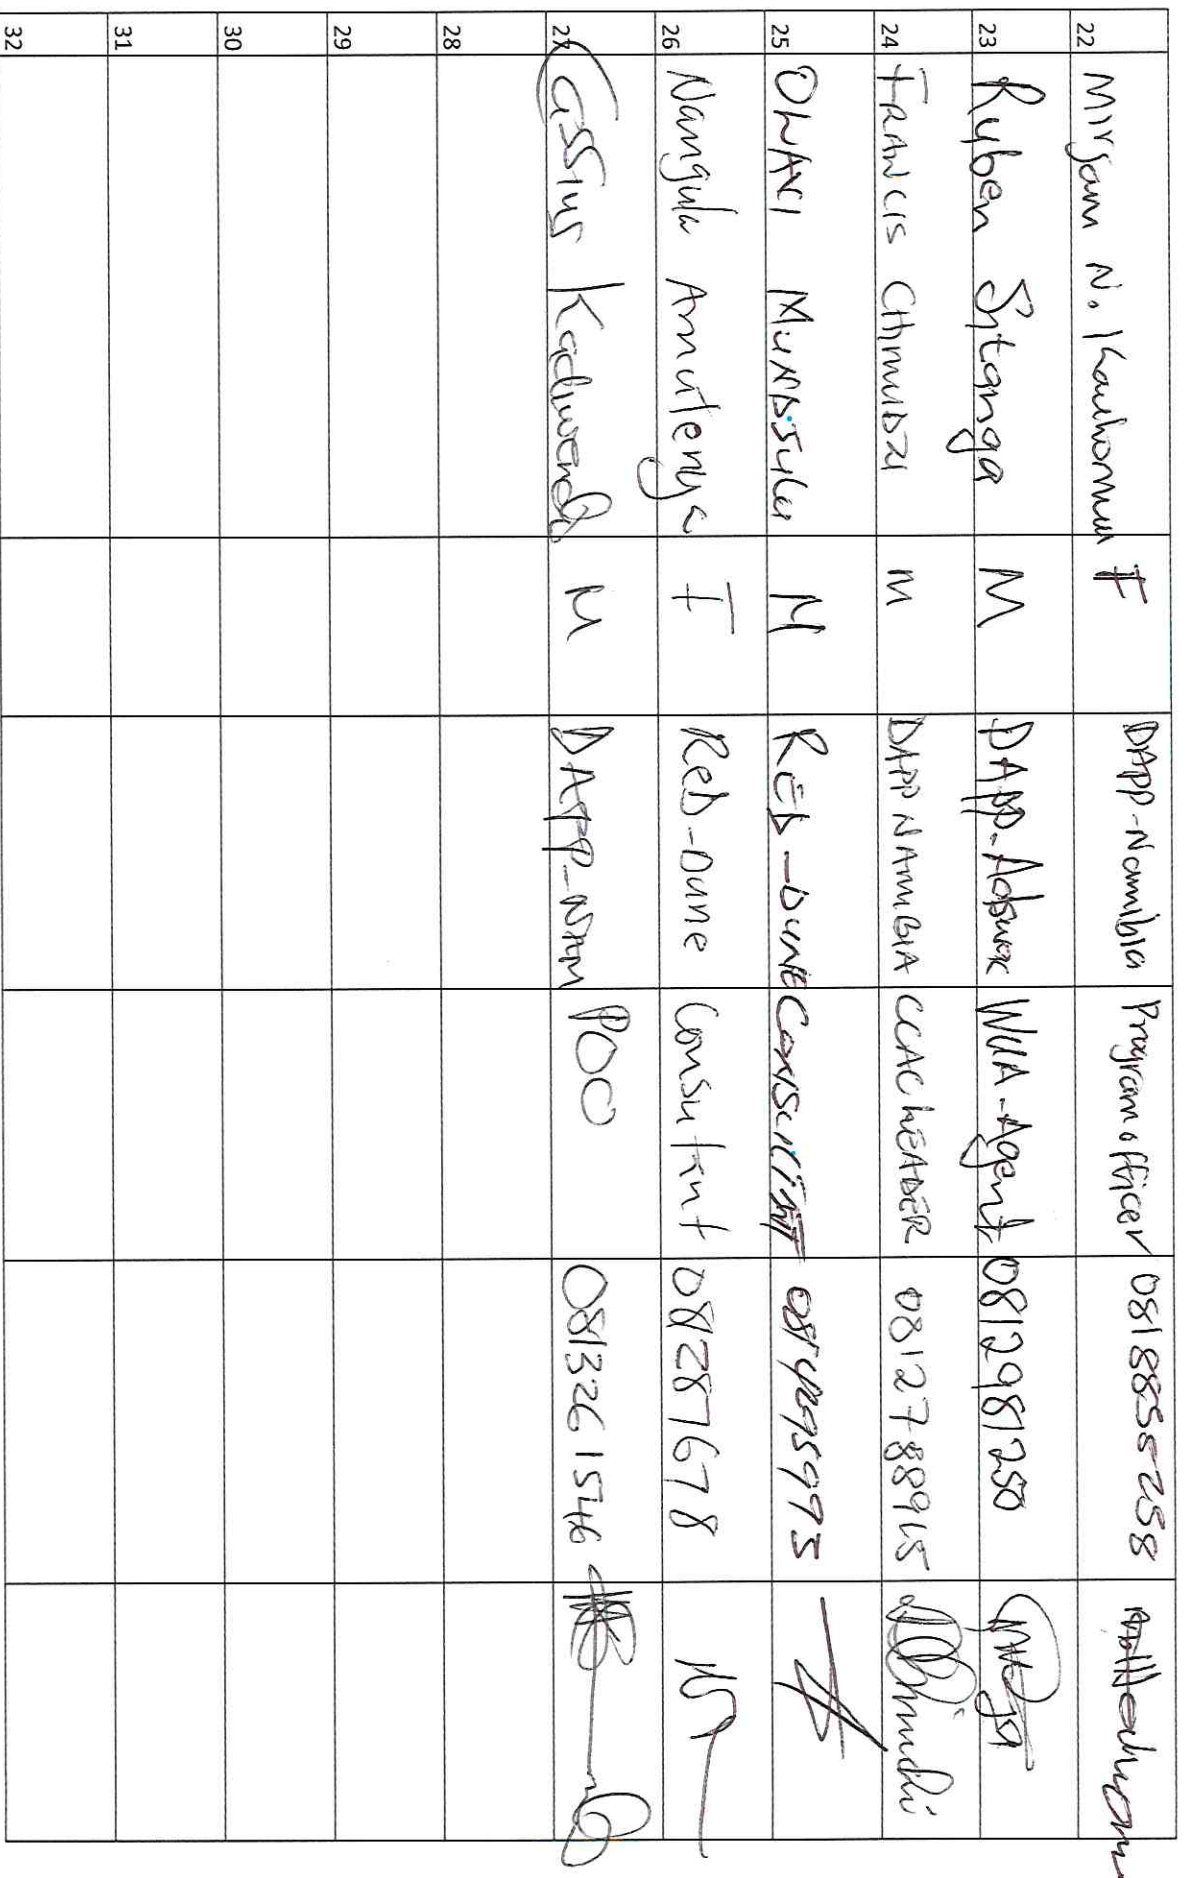 22 Mirjam N. Kauhomu F DAPP-Namibia Program officer 0818855258
23 Ruben Sitanga M DAPP. WUA-Agent 0812981250
24 FRANCIS CHIMUDZI m DAPP NAMIBIA CCAC LEADER 0812788915
25 M RED-DUNE
26 Nangula Amutenya F Red-Dune Consultant 0828767678
27 Cassius M DAPP-NAM POO 0813261546
28
29
30
31
32